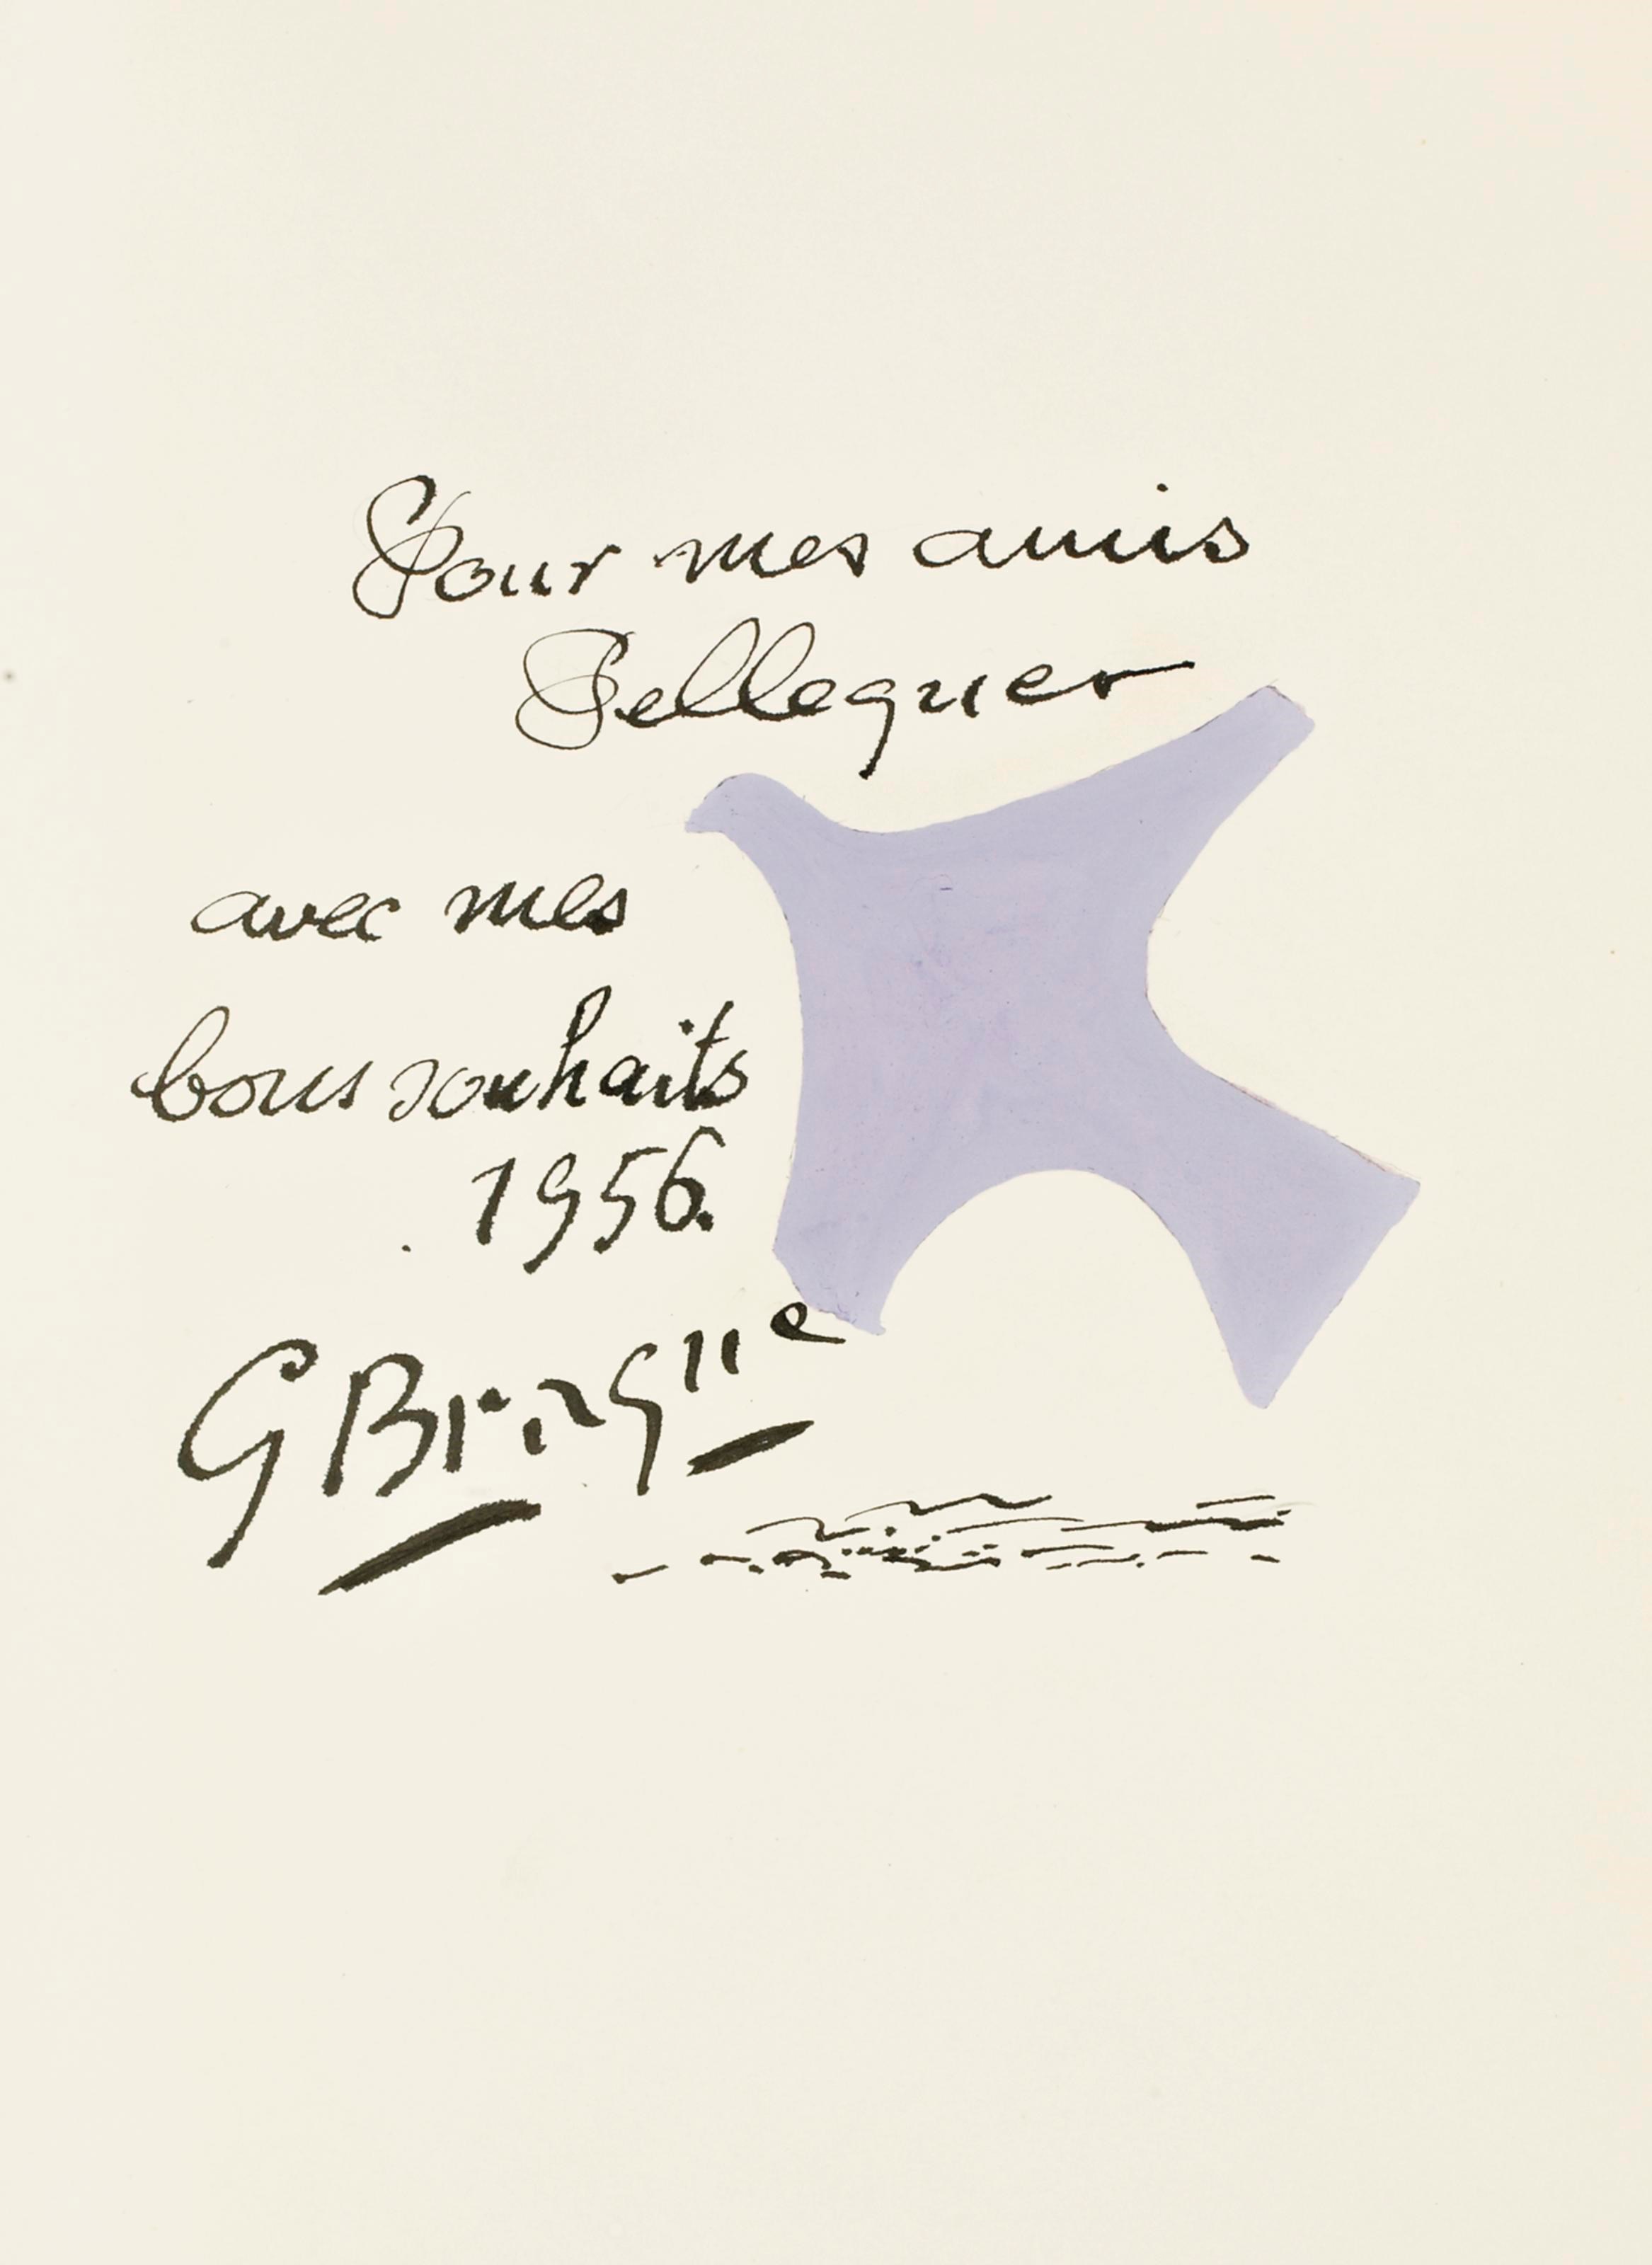 Pour mes amis
Pellequer
avec mes
bons souhaits
1956.
G Braque